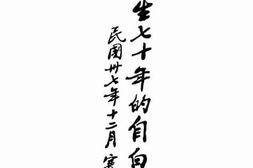 生七十年的自白
民國卅七年十二月